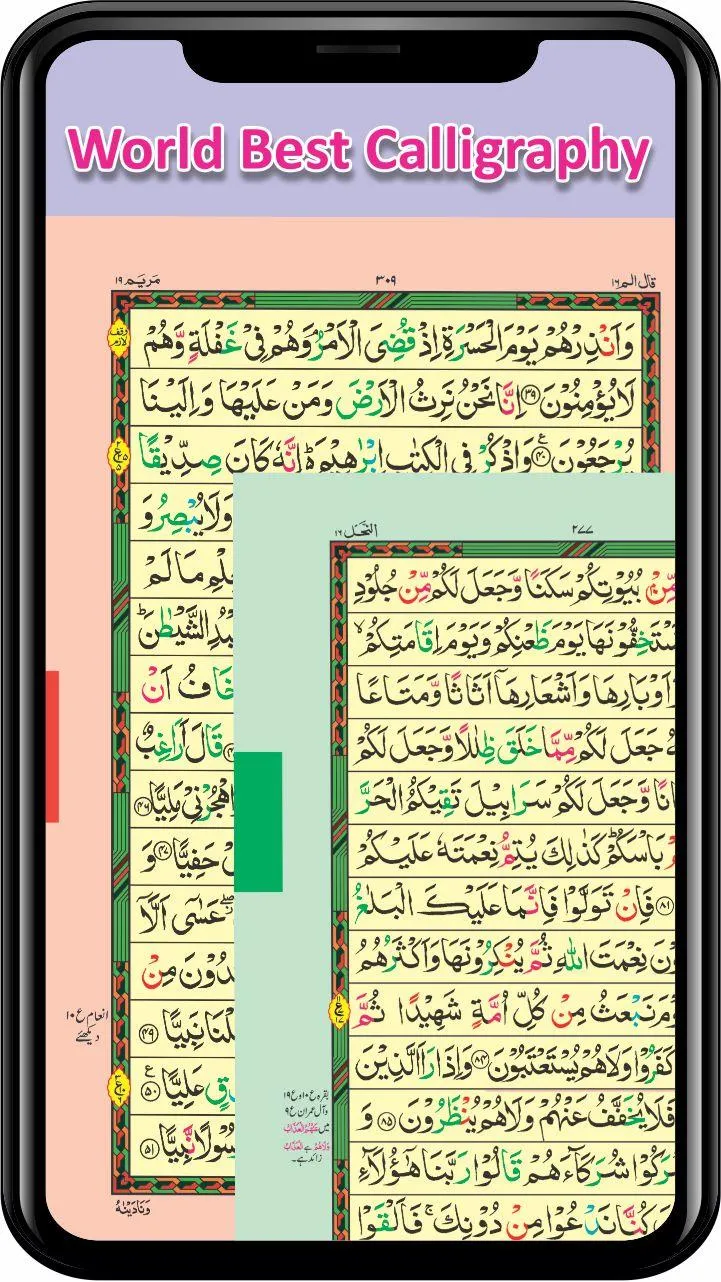 World Best Calligraphy
قال الم ١٦
٣٠٩
مَرْيَم ١٩
وَاَنْذِرْهُمْ يَوْمَ الْحَسْرَةِ اِذْ قُضِيَ الْاَمْرُ وَهُمْ فِيْ غَفْلَةٍ وَّهُمْ
وقف لازم
لَا يُؤْمِنُوْنَ ﴿٣٩﴾ اِنَّا نَحْنُ نَرِثُ الْاَرْضَ وَمَنْ عَلَيْهَا وَاِلَيْنَا
يُرْجَعُوْنَ ﴿٤٠﴾ وَاذْكُرْ فِي الْكِتٰبِ اِبْرٰهِيْمَ ۬ اِنَّهٗ كَانَ صِدِّيْقًا
وَلَا يُبْصِرُ وَ
مَا لَمْ
الشَّيْطٰنَ ؕ
اَنْ
قَالَ اَرَاغِبٌ
مَلِيًّا ﴿٤٦﴾
حَفِيًّا ﴿٤٧﴾ وَ
عَسٰٓى اَلَّآ
مِنْ
نَبِيًّا ﴿٤٩﴾
عَلِيًّا ﴿٥٠﴾
نَّبِيًّا ﴿٥١﴾
انعام ع ١٠
دیکھئے
وَنَادَيْنٰهُ
٢٧٧
النَّحْل ١٦
مِّنْۢ بُيُوْتِكُمْ سَكَنًا وَّجَعَلَ لَكُمْ مِّنْ جُلُوْدِ
سْتَخِفُّوْنَهَا يَوْمَ ظَعْنِكُمْ وَيَوْمَ اِقَامَتِكُمْ ۙ
وَاَوْبَارِهَا وَاَشْعَارِهَآ اَثَاثًا وَّمَتَاعًا
جَعَلَ لَكُمْ مِّمَّا خَلَقَ ظِلٰلًا وَّجَعَلَ لَكُمْ
نًا وَّجَعَلَ لَكُمْ سَرَابِيْلَ تَقِيْكُمُ الْحَرَّ
بَاْسَكُمْ ؕ كَذٰلِكَ يُتِمُّ نِعْمَتَهٗ عَلَيْكُمْ
﴿٨١﴾ فَاِنْ تَوَلَّوْا فَاِنَّمَا عَلَيْكَ الْبَلٰغُ
وْنَ نِعْمَتَ اللّٰهِ ثُمَّ يُنْكِرُوْنَهَا وَاَكْثَرُهُمُ
مَ نَبْعَثُ مِنْ كُلِّ اُمَّةٍ شَهِيْدًا ثُمَّ
كَفَرُوْا وَلَا هُمْ يُسْتَعْتَبُوْنَ ﴿٨٤﴾ وَاِذَا رَاَ الَّذِيْنَ
فَلَا يُخَفَّفُ عَنْهُمْ وَلَا هُمْ يُنْظَرُوْنَ ﴿٨٥﴾ وَ
رَكُوْا شُرَكَآءَهُمْ قَالُوْا رَبَّنَا هٰٓؤُلَآءِ
كُنَّا نَدْعُوْا مِنْ دُوْنِكَ ۚ فَاَلْقَوْا
بقرہ ع ١٠ و ع ١٩
وآل عمران ع ٩
میں عَنْهُمُ الْعَذَابُ
وَلَا هُمْ ہے الْعَذَابُ
زائد ہے۔